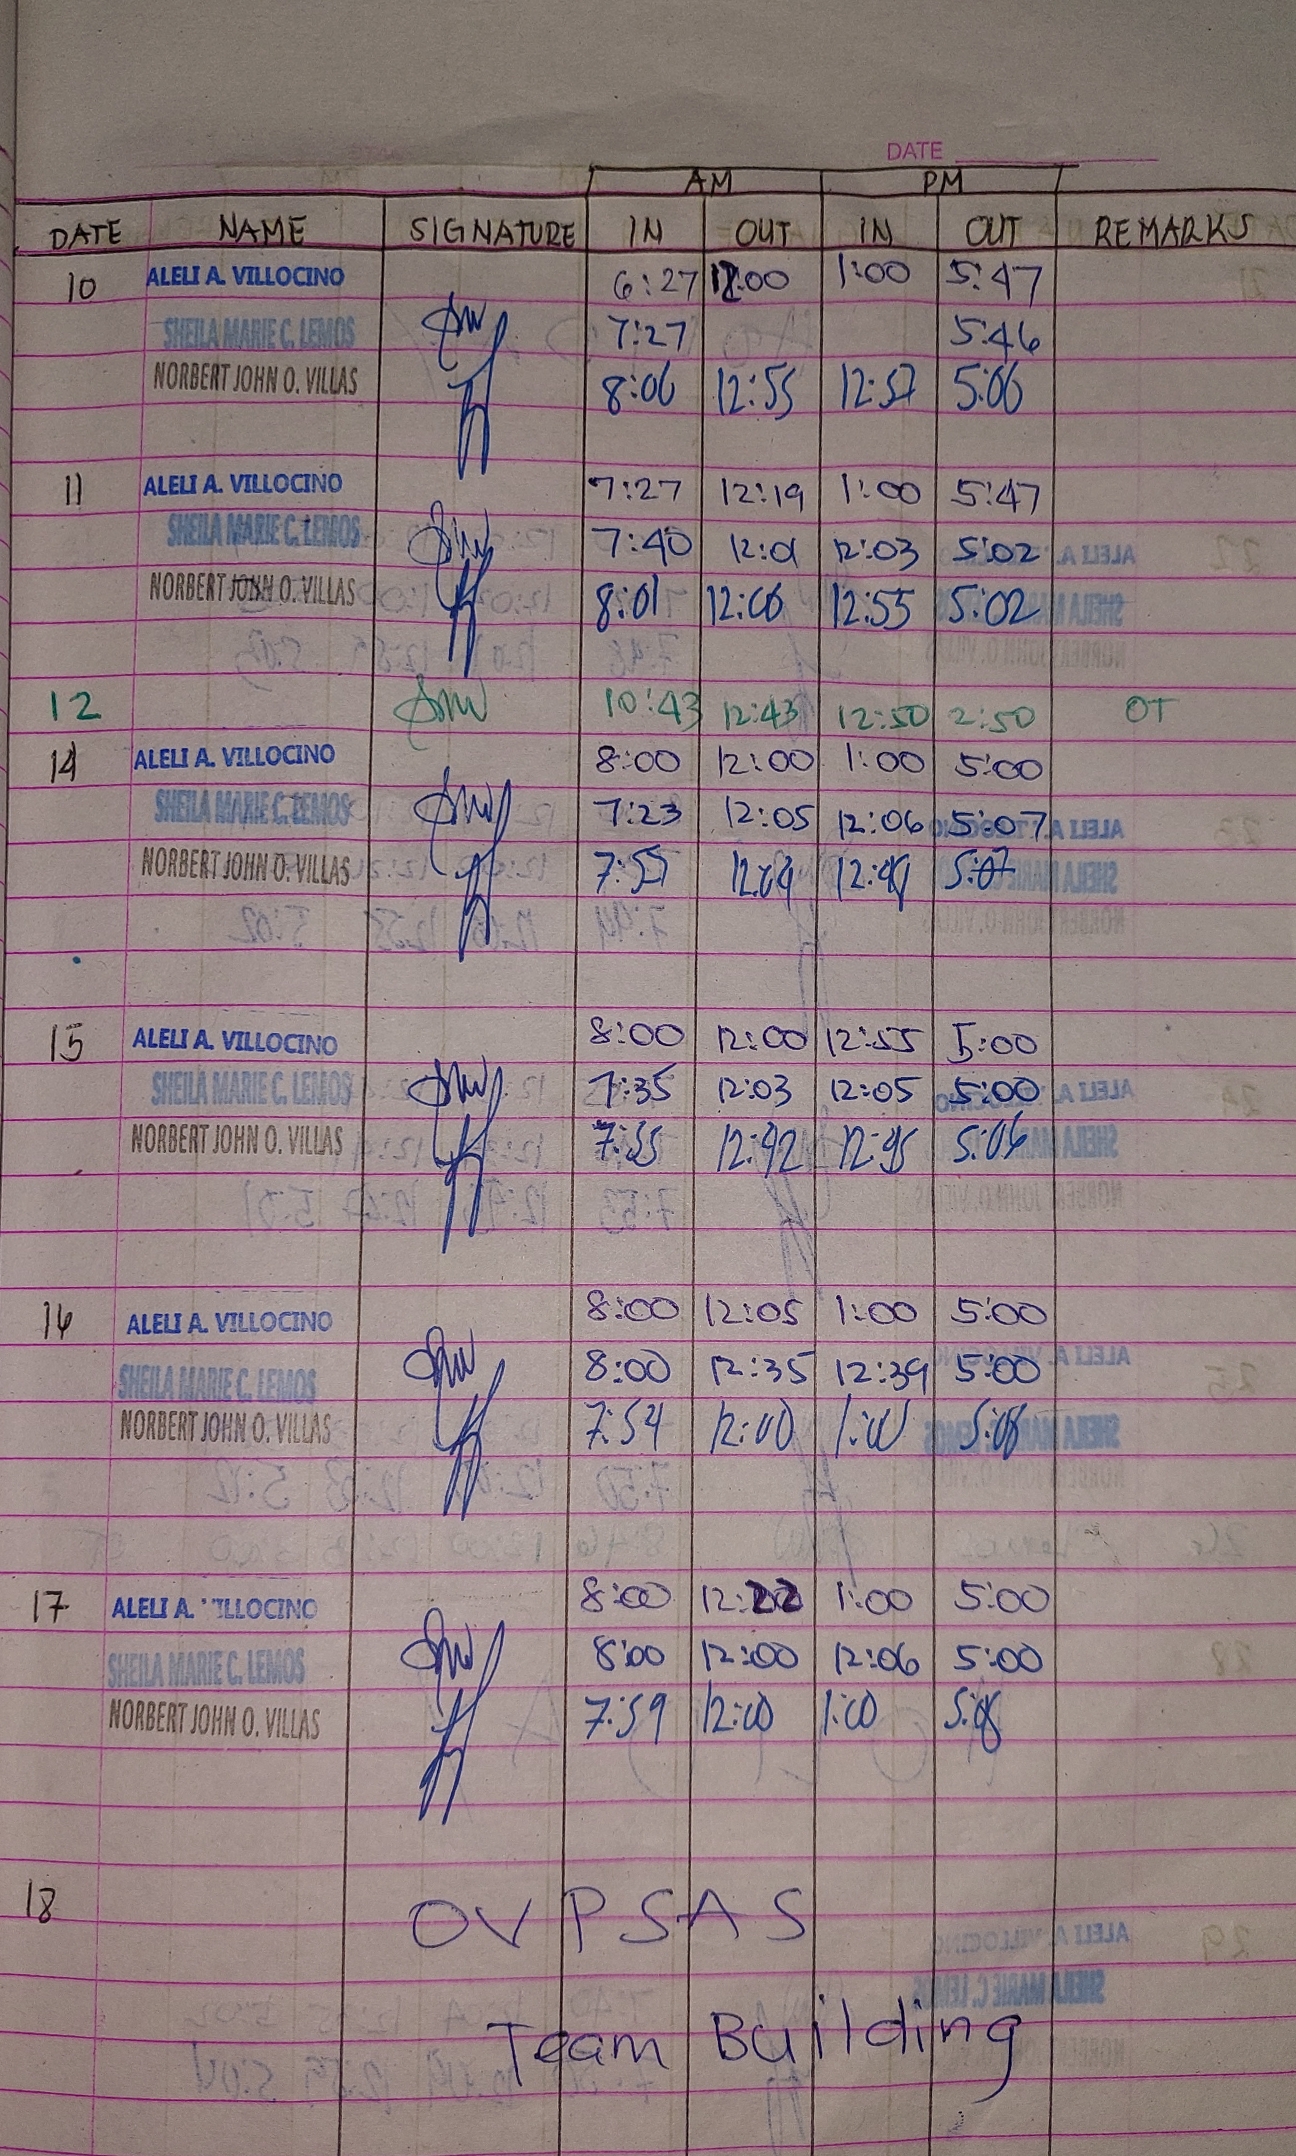 DATE
AM PM
DATE NAME SIGNATURE IN OUT IN OUT REMARKS
10 ALELI A. VILLOCINO 6:27 12:00 1:00 5:47
SHEILA MARIE C. LEMOS 7:27 5:46
NORBERT JOHN O. VILLAS 8:06 12:55 12:57 5:06
11 ALELI A. VILLOCINO 7:27 12:19 1:00 5:47
SHEILA MARIE C. LEMOS 7:40 12:01 12:03 5:02
NORBERT JOHN O. VILLAS 8:01 12:06 12:55 5:02
12 10:43 12:43 12:50 2:50 OT
14 ALELI A. VILLOCINO 8:00 12:00 1:00 5:00
SHEILA MARIE C. LEMOS 7:23 12:05 12:06 5:07
NORBERT JOHN O. VILLAS 7:55 5:07
15 ALELI A. VILLOCINO 8:00 12:00 12:55 5:00
SHEILA MARIE C. LEMOS 7:35 12:03 12:05 5:00
NORBERT JOHN O. VILLAS 7:55 12:42 12:45
16 ALELI A. VILLOCINO 8:00 12:05 1:00 5:00
SHEILA MARIE C. LEMOS 8:00 12:35 12:39 5:00
NORBERT JOHN O. VILLAS 7:54 12:00 1:00
17 ALELI A. VILLOCINO 8:00 12:22 1:00 5:00
SHEILA MARIE C. LEMOS 8:00 12:00 12:06 5:00
NORBERT JOHN O. VILLAS 7:59 12:00 1:00
18 OVPSAS
Team Building